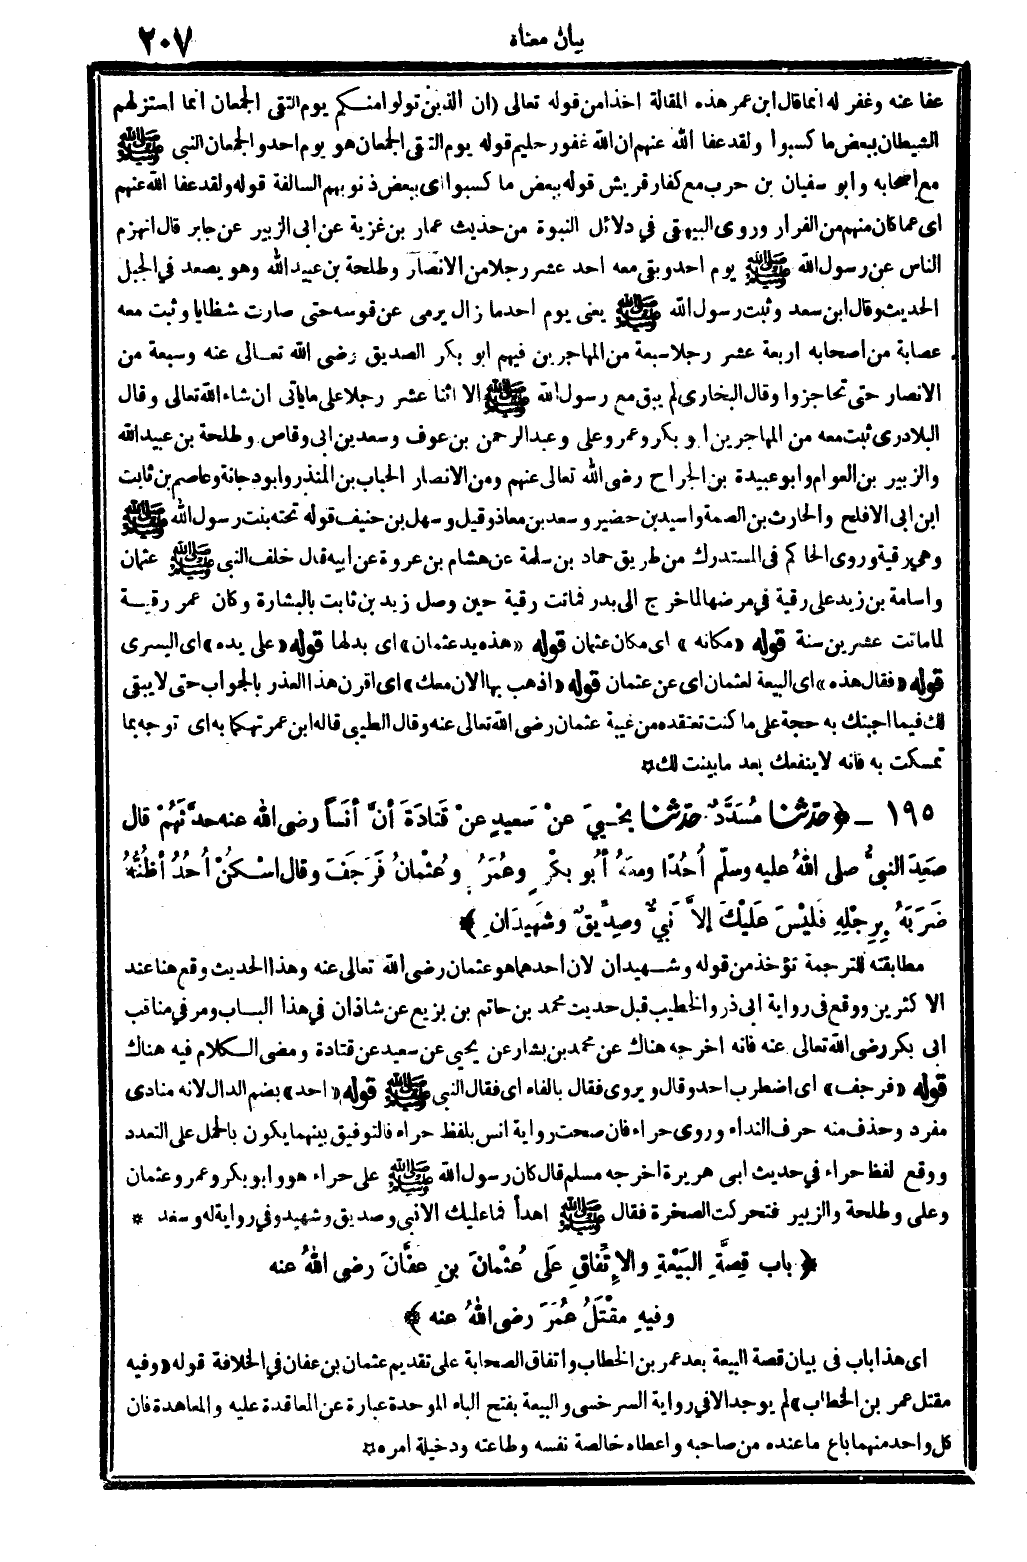 بيان معناه
٢٠٧
عفا عنه وغفر له انما قال ابن عمر هذه المقالة اخذا من قوله تعالى (ان الذين تولوا منكم يوم التقى الجمعان انما استزلهم
الشيطان ببعض ما كسبوا ولقد عفا الله عنهم ان الله غفور حليم قوله يوم التقى الجمعان هو يوم احد والجمعان النبي ﷺ
مع اصحابه وابو سفيان بن حرب مع كفار قريش قوله ببعض ما كسبوا اى ببعض ذنوبهم السالفة قوله ولقد عفا الله عنهم
اى عما كان منهم من الفرار وروى البيهقى في دلائل النبوة من حديث عمار بن غزية عن ابى الزبير عن جابر قال انهزم
الناس عن رسول الله ﷺ يوم احد وبقى معه احد عشر رجلا من الانصار وطلحة بن عبيد الله وهو يصعد في الجبل
الحديث وقال ابن سعد وثبت رسول الله ﷺ يعنى يوم احد ما زال يرمى عن قوسه حتى صارت شظايا وثبت معه
عصابة من اصحابه اربعة عشر رجلا سبعة من المهاجرين فيهم ابو بكر الصديق رضى الله تعالى عنه وسبعة من
الانصار حتى تحاجزوا وقال البخارى لم يبق مع رسول الله ﷺ الا اثنا عشر رجلا على ما يأتى ان شاء الله تعالى وقال
البلادرى ثبت معه من المهاجرين ابو بكر وعمر وعلى وعبد الرحمن بن عوف وسعد بن ابى وقاص وطلحة بن عبيد الله
والزبير بن العوام وابو عبيدة بن الجراح رضى الله تعالى عنهم ومن الانصار الحباب بن المنذر وابو دجانة وعاصم بن ثابت
ابن ابى الافلح والحارث بن الصمة واسيد بن حضير وسعد بن معاذ وقيل وسهل بن حنيف قوله تحته بنت رسول الله ﷺ
وهى رقية وروى الحاكم فى المستدرك من طريق حماد بن سلمة عن هشام بن عروة عن ابيه قال خلف النبى ﷺ عثمان
واسامة بن زيد على رقية في مرضها لما خرج الى بدر فماتت رقية حين وصل زيد بن ثابت بالبشارة وكان عمر رقيــة
لما ماتت عشرين سنة قوله «مكانه» اى مكان عثمان قوله «هذه يد عثمان» اى بدلها قوله «على يده» اى اليسرى
قوله «فقال هذه» اى البيعة لعثمان اى عن عثمان قوله «اذهب بها الآن معك» اى اقرن هذا العذر بالجواب حتى لا يبقى
لك فيما اجبتك به حجة على ما كنت تعتقده من غيبة عثمان رضى الله تعالى عنه وقال الطيبى قاله ابن عمر تهكما به اى توجه بما
تمسكت به فانه لا ينفعك بعد ما بينت لك ¤
١٩٥ ــ ﴿حدّثنا مُسَدَّدٌ حدّثنا يَحْيىَ عنْ سَعيدٍ عنْ قَتَادَةَ أنَّ أنَساً رضى الله عنه حدَّثَهُمْ قال
صَعِدَ النبىُّ صلى اللهُ عليه وسلّم أُحُدًا ومعَهُ أبُو بكْرٍ وعُمَرُ وعُثْمانُ فَرَجَفَ وقال اسْكُنْ أُحُدُ أظُنُّهُ
ضَرَبَهُ بِرِجْلِهِ فَلَيْسَ عَلَيْكَ إلاَّ نَبىٌّ وصِدِّيقٌ وشَهِيدَانِ ﴾
مطابقته للترجمة تؤخذ من قوله وشهيدان لان احدهما هو عثمان رضى الله تعالى عنه وهذا الحديث وقع هنا عند
الاكثرين ووقع فى رواية ابى ذر والخطيب قبل حديث محمد بن حاتم بن بزيع عن شاذان في هذا الباب ومر في مناقب
ابى بكر رضى الله تعالى عنه فانه اخرجه هناك عن محمد بن بشار عن يحيى عن سعيد عن قتادة ومضى الكلام فيه هناك
قوله «فرجف» اى اضطرب احد وقال ويروى فقال بالفاء اى فقال النبى ﷺ قوله «احد» بضم الدال لانه منادى
مفرد وحذف منه حرف النداء وروى حراء فان صحت رواية انس بلفظ حراء فالتوفيق بينهما يكون بالحمل على التعدد
ووقع لفظ حراء في حديث ابى هريرة اخرجه مسلم قال كان رسول الله ﷺ على حراء هو وابو بكر وعمر وعثمان
وعلى وطلحة والزبير فتحركت الصخرة فقال ﷺ اهدأ فما عليك الا نبى وصديق وشهيد وفي رواية له وسعد *
﴿ باب قِصَّةِ البَيْعَةِ والاِتِّفاقِ عَلَى عُثْمانَ بنِ عفَّانَ رضى اللهُ عنه
وفيهِ مقْتَلُ عُمَرَ رضى اللهُ عنه ﴾
اى هذا باب فى بيان قصة البيعة بعد عمر بن الخطاب واتفاق الصحابة على تقديم عثمان بن عفان في الخلافة قوله «وفيه
مقتل عمر بن الخطاب» لم يوجد الا في رواية السرخسى والبيعة بفتح الباء الموحدة عبارة عن المعاقدة عليه والمعاهدة فان
كل واحد منهما باع ما عنده من صاحبه واعطاه خالصة نفسه وطاعته ودخيلة امره ¤